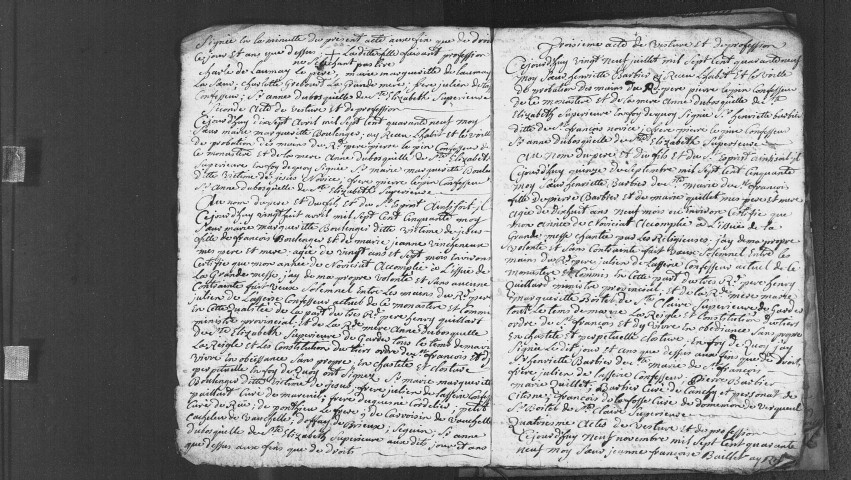 Signée en la minutte du present acte aux fin que de droit
Ce jour et ans que dessus laditte fille faisant profession
charle de launay le pere, marie marguerite de launay
La Sœur, charlotte La Grande mere, frere julien de
Confesseur, Sr anne dubosquelle de Ste Elizabeth Superieure
Seconde acte de vesture et de profession
Cejourdhuy dix sept avril mil sept cent quarante neuf moy
Sœur marie marguerite Boulenger, ay Receu l'habit et le voille
de probation des mains du Rd pere pierre le pin Confesseur de
ce monastere et de la mere Anne dubosquelle de Ste Elizabeth
Superieure en foy de quoy jay Signé Sr marie marguerite Boulenger
ditte victime de jesus Novice, frere pierre le pin Confesseur
Sr Anne dubosquelle de Ste Elizabeth Superieure
Au nom du pere et du fils et du St Esprit Ainsy soit il
Cejourdhuy vingt huit avril mil sept cent cinquante moy
Sœur marie marguerite Boulenger ditte victime de jesus
fille de francois Boulenger et de marie jeanne
mes pere et mere, agée de vingt ans et sept mois environ
Certifie que mon année de Novitiat accomplie a l'issue de
La Grande messe, jay de ma propre volonté et sans aucune
Contrainte fait vœux Solemnel Entre les mains du Rd pere
julien de lasserre Confesseur actuel de ce monastere et Commis
en cette qualitée de la part du tres Rd pere henry quillart
ministre provincial, et de la Rde mere Anne dubosquelle
de Ste Elizabeth Superieure de Garder tous le tems de ma vie
La Reigle et les Constitution du tiers ordre de St francois et dy
vivre en obeissance Sans propre, en chasteté et closture
perpetuelle en foy de quoy ont Signés Sr marie marguerite
Boulenger ditte victime de jesus, frere julien de lasserre Confess
paillart Curé de mareuil, frere duquesne Cordelier, petit
Curé de Ruë, de ponthieu le frere, de Carvoisin de vauchelle
de vauchelle, Seguin, Sr anne
dubosquelle de Ste Elizabeth Superieure audit jour et ans
que dessus aux fins que de droit
Troisieme acte de vesture et de profession
Cejourdhuy vingt neuf juillet mil sept cent quarante neuf
moy Sœur henriette Barbier ay Receu l'habit et le voille
de probation des mains du Rd pere pierre le pin Confesseur
de ce monastere et de la mere Anne dubosquelle de Ste
Elizabeth Superieure en foy de quoy Signé Sr henriette barbier
ditte de St francois novice, frere pierre le pin Confesseur
Sr anne dubosquelle de Ste Elizabeth Superieure
Au Nom du pere et du fils et du St Esprit ainsy soit il
Cejourdhuy quinze de septembre mil sept cent cinquante
moy Sœur henriette Barbier de Ste marie de St francois
fille de pierre Barbier et de marie quillet mes pere et mere
agée de dix huit ans neuf mois ou environ Certifie que
mon année de Noviciat Accomplie a l'issue de la
Grande messe chantée par les Religieuses, jay de ma propre
volonté et sans Contrainte fait vœux Solemnel Entre les
mains du Rd pere julien de lasserre Confesseur actuel de ce
monastere et Commis en cette part du tres Rd pere henry
Quillart ministre provincial, et de la Rde mere marie
marguerite Bortel de Ste Claire Superieure de Garder
tout le tems de ma vie La Reigle et Constitution du tiers
ordre de St francois et dy vivre en obediance Sans propre
en chasteté et perpetuelle closture, en foy de quoy jay
Signée le dit jour et ans que dessus aux fins que de Droit,
Sr henriette Barbier de Ste marie de St francois,
frere julien de lasserre Confesseur, pierre Barbier
marie Quillet, Barbier Curé de Canchy et personat de
, francois de la fosse Curé de domenion de vergueul
Sr Bortel de Ste Claire Superieure
Quatrieme Actes de vesture et de profession
Cejourdhuy neuf novembre mil sept cent quarante
neuf moy Sœur jeanne francoise Baillet ay